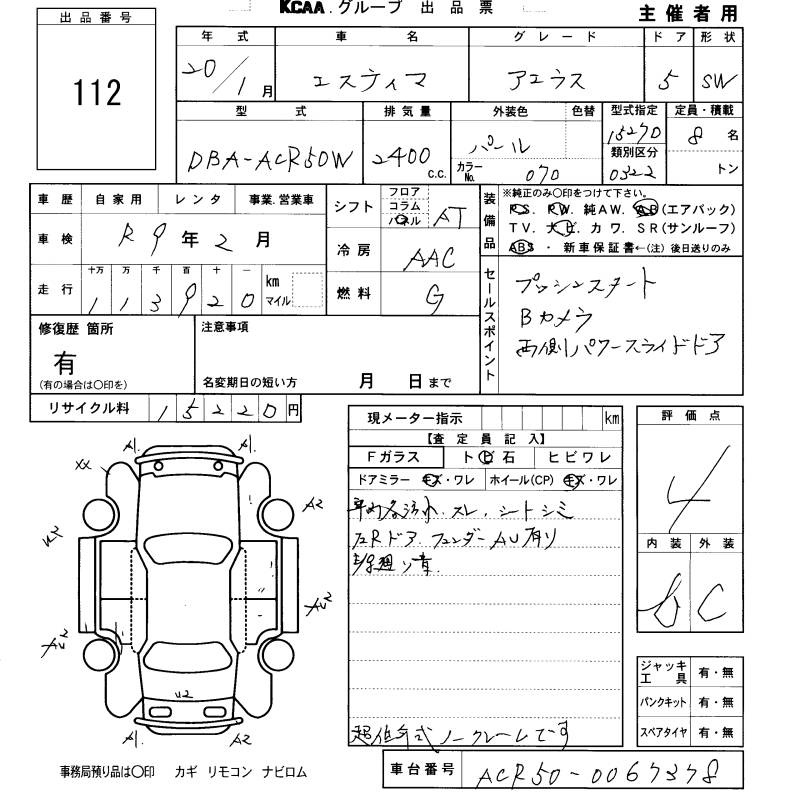 KCAA.グループ 出品票
主催者用
出品番号
112
年式 車名 グレード ドア 形状
20/1月 エスティマ アエラス 5 SW
型式 排気量 外装色 色替 型式指定 定員・積載
DBA-ACR50W 2400 C.C. パール 15270 8名
カラーNo. 070 類別区分 0322 トン
車歴 自家用 レンタ 事業.営業車
車検 R9年2月
走行 十万 万 千 百 十 一 km マイル
113920
シフト フロア コラム パネル AT
冷房 AAC
燃料 G
装備品
※純正のみ〇印をつけて下さい。
PS. PW. 純AW. AB(エアバック)
TV. ナビ. カワ. SR(サンルーフ)
ABS・新車保証書←(注)後日送りのみ
セールスポイント
プッシュスタート
Bカメラ
両側パワースライドドア
修復歴 箇所
有
(有の場合は〇印を)
注意事項
名変期日の短い方 月 日まで
リサイクル料 15220円
現メーター指示 km
【査定員記入】
Fガラス トビ石 ヒビワレ
ドアミラー キズ・ワレ ホイール(CP) キズ・ワレ
車内各汚れ、スレ、シートシミ
左Rドア、フェンダーAU有り
低年式ノークレームです
評価点
4
内装 外装
C
ジャッキ工具 有・無
パンクキット 有・無
スペアタイヤ 有・無
A1. A1.
XX
A2
U2
A1. A2
事務局預り品は〇印 カギ リモコン ナビロム
車台番号 ACR50-0067378